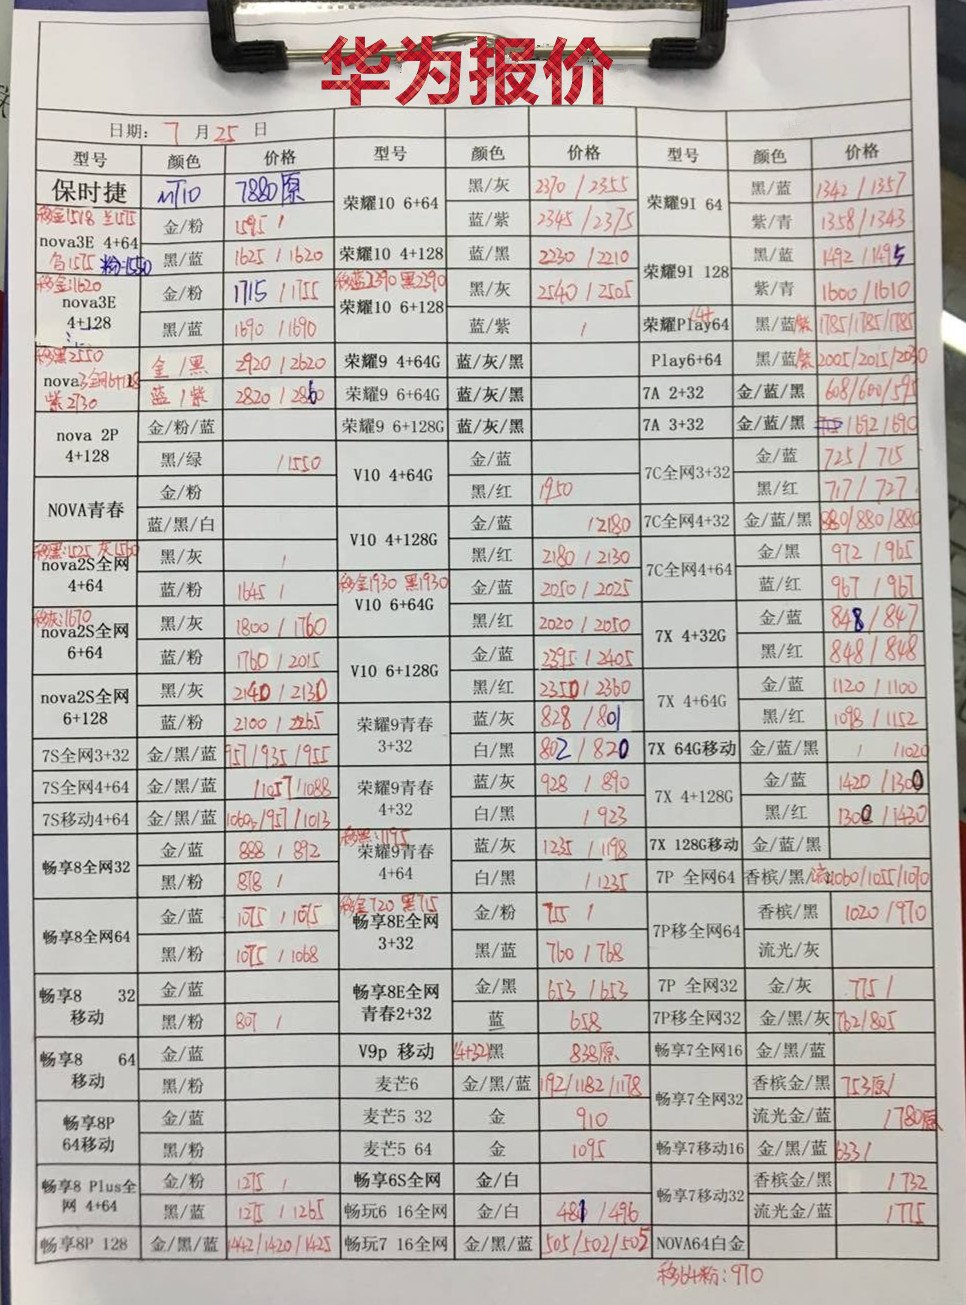 华为报价
日期: 7 月 25 日
型号 颜色 价格 型号 颜色 价格 型号 颜色 价格
保时捷 MT10 7880原
移金1518 兰1515
nova3E 4+64 金/粉 1595 /
黑/蓝 1625 / 1620
粉:1550
移金:1620
nova3E 4+128 金/粉 1715 / 1755
黑/蓝 1690 / 1690
移黑2550
nova3全网6+128 金/黑 2920 / 2620
紫2730 蓝/紫 2820 / 2860
nova 2P 4+128 金/粉/蓝
黑/绿 / 1550
NOVA青春 金/粉
蓝/黑/白
移黑:1525 灰1560
nova2S全网 4+64 黑/灰 /
蓝/粉 1645 /
移灰:1670
nova2S全网 6+64 黑/灰 1800 / 1760
蓝/粉 1760 / 2015
nova2S全网 6+128 黑/灰 2140 / 2130
蓝/粉 2100 / 2265
7S全网3+32 金/黑/蓝 957/935/955
7S全网4+64 金/黑/蓝 /1057/1088
7S移动4+64 金/黑/蓝 /957/1013
畅享8全网32 金/蓝 888 / 892
黑/粉 878 /
畅享8全网64 金/蓝 1075 / 1075
黑/粉 1075 / 1068
畅享8 32 移动 金/蓝
黑/粉 807 /
畅享8 64 移动 金/蓝
黑/粉
畅享8P 64移动 金/蓝
黑/粉
畅享8 Plus全网 4+64 金/粉 1275 /
黑/蓝 1275 / 1265
畅享8P 128 金/黑/蓝 1442/1420/1425
荣耀10 6+64 黑/灰 2370 / 2355
蓝/紫 2345 / 2375
荣耀10 4+128 蓝/黑 2230 / 2210
移蓝2390 黑2390
荣耀10 6+128 黑/灰 2540 / 2505
蓝/紫 /
荣耀9 4+64G 蓝/灰/黑
荣耀9 6+64G 蓝/灰/黑
荣耀9 6+128G 蓝/灰/黑
V10 4+64G 金/蓝
黑/红 1950
V10 4+128G 金/蓝 / 2180
黑/红 2180 / 2130
移金1930 黑1930
V10 6+64G 金/蓝 2050 / 2025
黑/红 2020 / 2050
V10 6+128G 金/蓝 2395 / 2405
黑/红 2350 / 2360
荣耀9青春 3+32 蓝/灰 828 / 801
白/黑 802 / 820
荣耀9青春 4+32 蓝/灰 928 / 890
白/黑 / 923
移黑:1195
荣耀9青春 4+64 蓝/灰 1235 / 1198
白/黑 / 1235
移金720 黑715
畅享8E全网 3+32 金/粉 755 /
黑/蓝 760 / 768
畅享8E全网 青春2+32 金/黑 653 / 653
蓝 658
V9p 移动 (4+32)黑 838原
麦芒6 金/黑/蓝 1192/1182/1178
麦芒5 32 金 910
麦芒5 64 金 1095
畅享6S全网 金/白
畅玩6 16全网 金/白 481 / 496
畅玩7 16全网 金/黑/蓝 505/502/505
荣耀9I 64 黑/蓝 1342 / 1357
紫/青 1358/1343
荣耀9I 128 黑/蓝 1492 / 1495
紫/青 1600 / 1610
荣耀Play64 黑/蓝/紫 1785/1785/1785
Play6+64 黑/蓝/紫 2005/2015/2030
7A 2+32 金/蓝/黑 608/600/595
7A 3+32 金/蓝/黑 /692/690
7C全网3+32 金/蓝 725 / 715
黑/红 717 / 727
7C全网4+32 金/蓝/黑 880/880/880
7C全网4+64 金/黑 972 / 965
蓝/红 967 / 967
7X 4+32G 金/蓝 848 / 847
黑/红 848 / 848
7X 4+64G 金/蓝 1120 / 1100
黑/红 1098 / 1152
7X 64G移动 金/蓝/黑 / /1020
7X 4+128G 金/蓝 1420 / 1300
黑/红 1300 / 1430
7X 128G移动 金/蓝/黑
7P 全网64 香槟/黑/流 1060/1055/1070
7P移全网64 香槟/黑 1020 / 970
流光/灰
7P 全网32 金/灰 775 /
7P移全网32 金/黑/灰 762/805
畅享7全网16 金/黑/蓝
畅享7全网32 香槟金/黑 753原/
流光金/蓝 / 780原
畅享7移动16 金/黑/蓝 633 /
畅享7移动32 香槟金/黑 / 732
流光金/蓝 / 775
NOVA64白金
移64粉:970